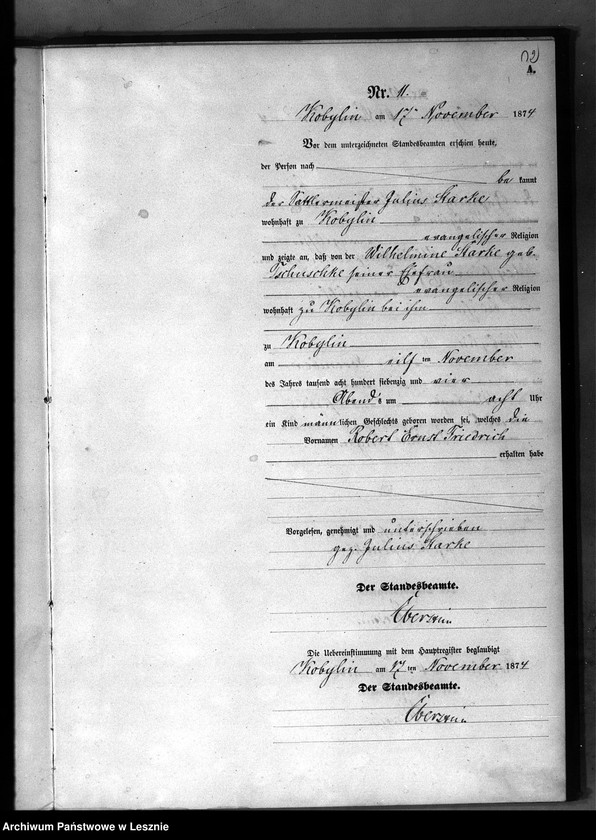 12
A.
Nr. 11.
Kobylin am 17ten November 1874
Vor dem unterzeichneten Standesbeamten erschien heute,
der Person nach
be kannt
der Sattlermeister Julius Starke
wohnhaft zu Kobylin
evangelischer Religion
und zeigte an, daß von der Wilhelmine Starke geb.
Tschuschke seiner Ehefrau
evangelischer Religion
wohnhaft zu Kobylin bei ihm
zu Kobylin
am eilf ten November
des Jahres tausend acht hundert siebenzig und vier
Abend's um acht Uhr
ein Kind männlichen Geschlechts geboren worden sei, welches die
Vornamen Robert Ernst Friedrich
erhalten habe
Vorgelesen, genehmigt und unterschrieben
gez. Julius Starke
Der Standesbeamte.
Die Uebereinstimmung mit dem Hauptregister beglaubigt
Kobylin am 17 ten November 1874
Der Standesbeamte.
Archiwum Państwowe w Lesznie